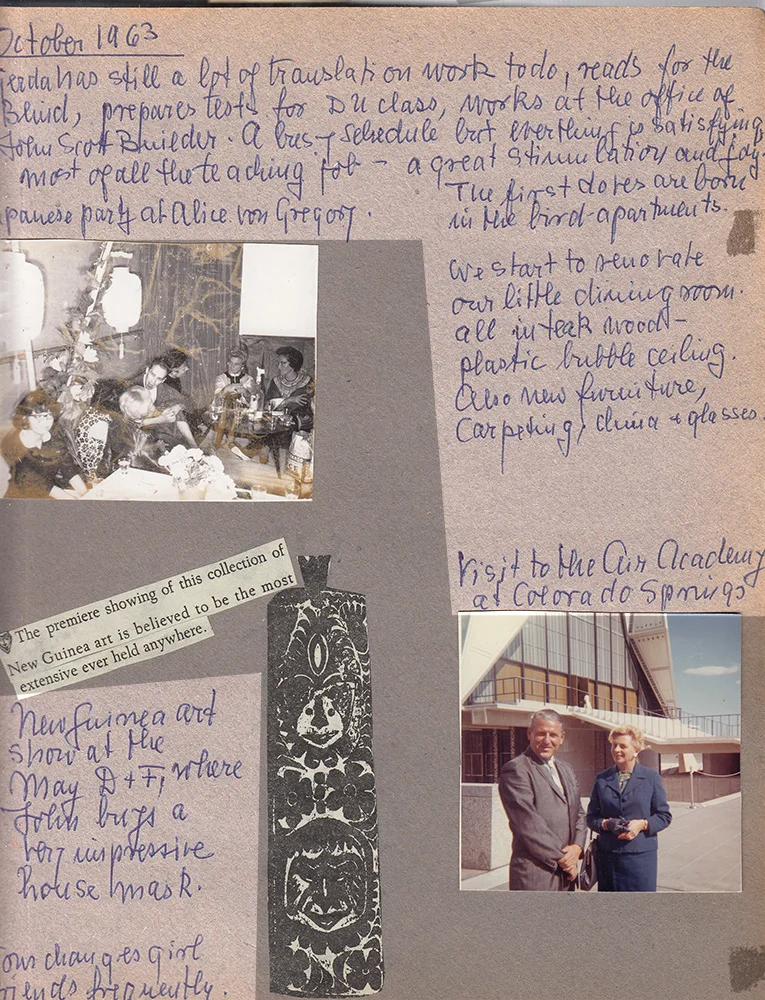 October 1963
Gerda has still a lot of translation work to do, reads for the
Blind, prepares tests for DU class, works at the office of
John Scott Builder. A busy schedule but everthing is satisfying,
most of all the teaching job – a great stimulation and joy.
Japanese party at Alice von Gregory.
The first doves are born
in the bird-apartments.
We start to renovate
our little dining room.
all in teak wood –
plastic bubble ceiling.
Also new furniture,
Carpeting, china + glasses.
Visit to the Air Academy
at Colorado Springs
The premiere showing of this collection of
New Guinea art is believed to be the most
extensive ever held anywhere.
New Guinea art
show at the
May D+F, where
John buys a
very impressive
house mask.
changes girl
friends frequently.